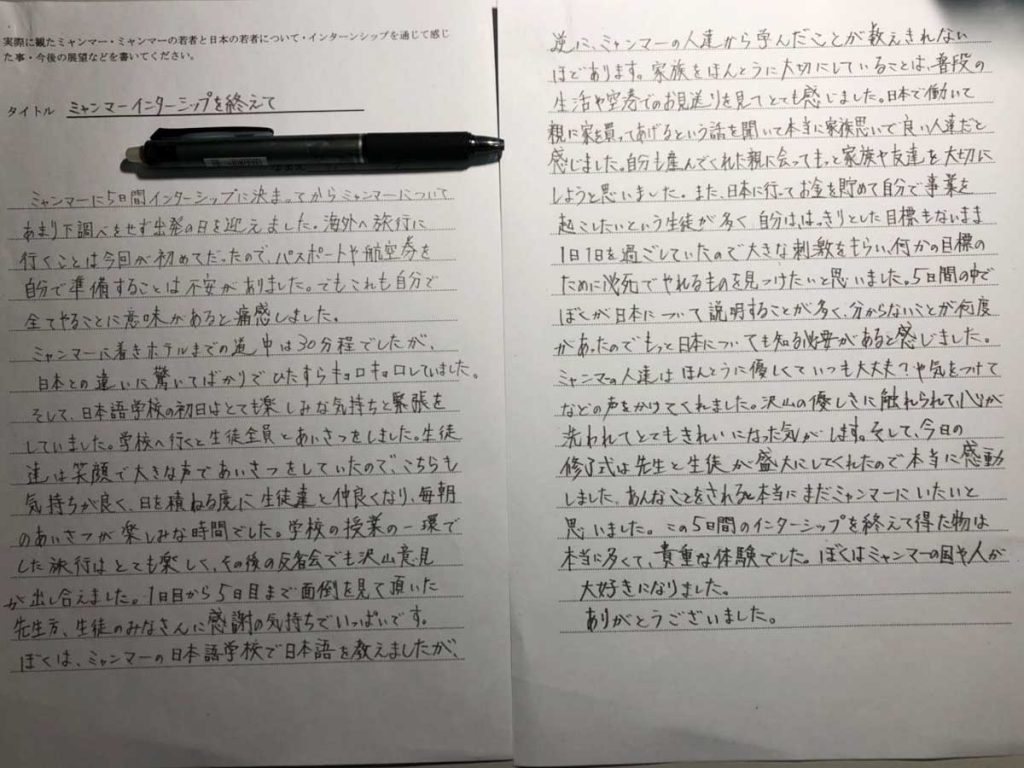 実際に観たミャンマー・ミャンマーの若者と日本の若者について・インターンシップを通じて感じ
た事・今後の展望などを書いてください。
タイトル ミャンマーインターシップを終えて
ミャンマーに5日間インターシップに決まってからミャンマーについて
あまり下調べをせず出発の日を迎えました。海外へ旅行に
行くことは今回が初めてだったので、パスポートや航空券を
自分で準備することは不安がありました。でもこれも自分で
全てやることに意味があると痛感しました。
ミャンマーに着きホテルまでの道中は30分程でしたが、
日本との違いに驚いてばかりでひたすらキョロキョロしていました。
そして、日本語学校の初日はとても楽しみな気持ちと緊張を
していました。学校へ行くと生徒全員とあいさつをしました。生徒
達は笑顔で大きな声であいさつをしていたので、こちらも
気持ちが良く、日を積ねる度に生徒達と仲良くなり、毎朝
のあいさつが楽しみな時間でした。学校の授業の一環で
した旅行はとても楽しく、その後の反省会でも沢山意見
が出し合えました。1日目から5日目まで面倒を見て頂いた
先生方、生徒のみなさんに感謝の気持ちでいっぱいです。
ぼくは、ミャンマーの日本語学校で日本語を教えましたが、
逆に、ミャンマーの人達から学んだことが数えきれない
ほどあります。家族をほんとうに大切にしていることは、普段の
生活や空港でのお見送りを見てとても感じました。日本で働いて
親に家を買ってあげるという話を聞いて本当に家族思いで良い人達だと
感じました。自分も産んでくれた親に会ってもっと家族や友達を大切に
しようと思いました。また、日本に行ってお金を貯めて自分で事業を
起こしたいという生徒が多く、自分ははっきりとした目標もないまま
1日1日を過ごしていたので大きな刺激をもらい、何かの目標の
ために必死でやれるものを見つけたいと思いました。5日間の中で
ぼくが日本について説明することが多く、分からないことが何度
があったのでもっと日本についても知る必要があると感じました。
ミャンマーの人達はほんとうに優しくていつも大丈夫?や気をつけて
などの声をかけてくれました。沢山の優しさに触れられて、心が
洗われてとてもきれいになった気がします。そして、今日の
修了式は先生と生徒が盛大にしてくれたので本当に感動
しました。あんなことをされると本当にまだミャンマーにいたいと
思いました。この5日間のインターシップを終えて得た物は
本当に多くて、貴重な体験でした。ぼくはミャンマーの国や人が
大好きになりました。
ありがとうございました。